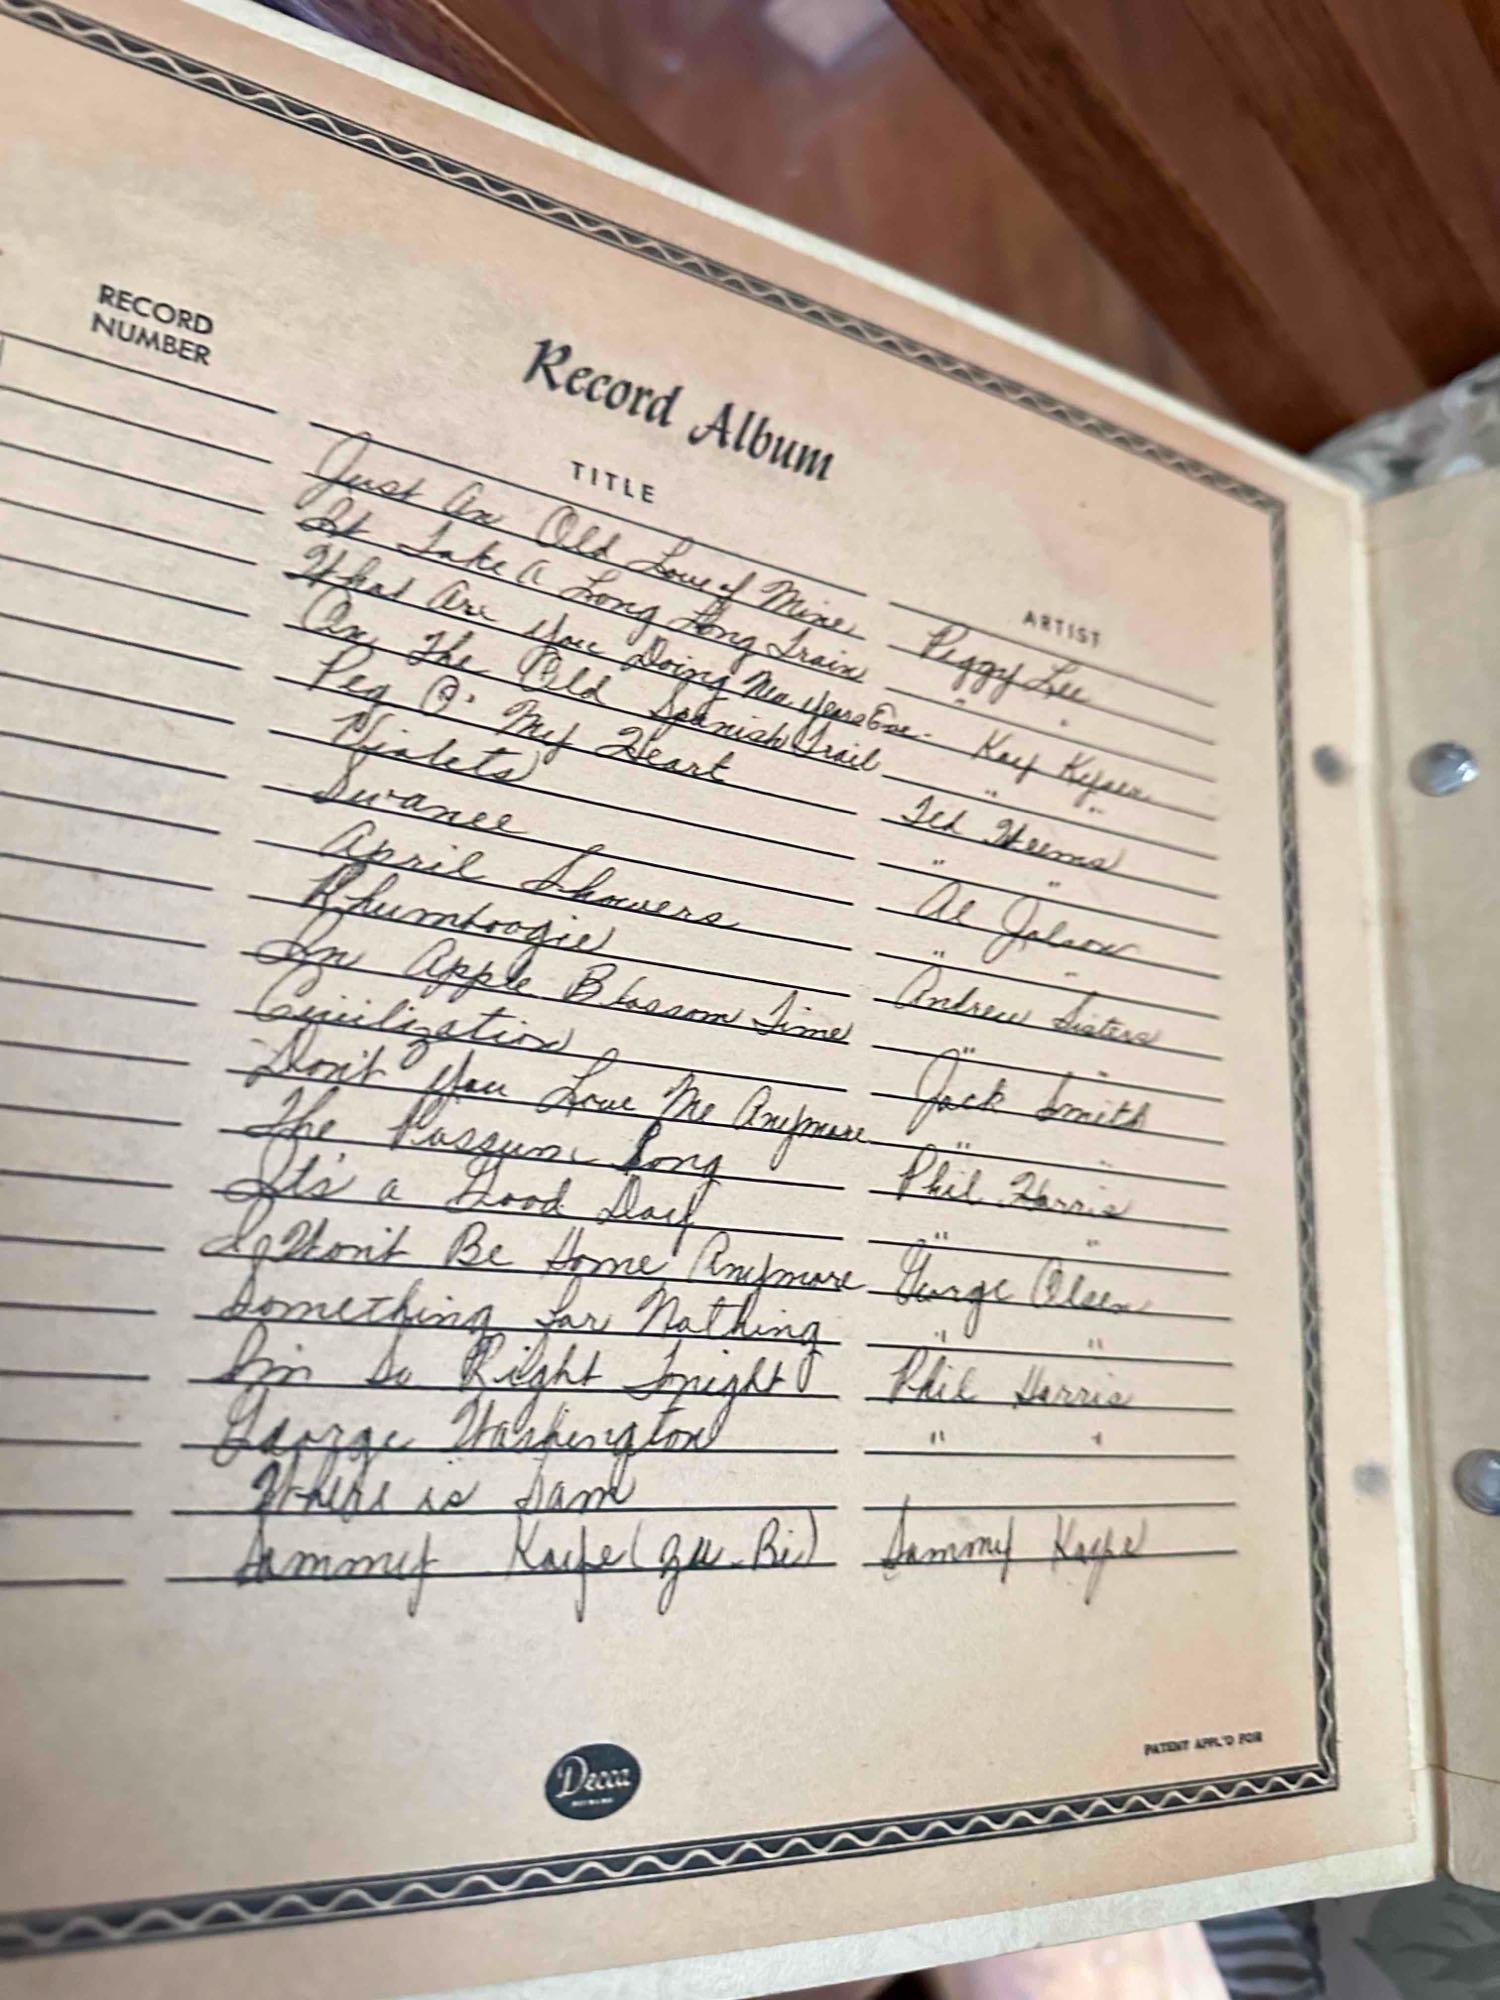 RECORD
NUMBER
Record Album
TITLE
ARTIST
Just An Old Love of Mine Peggy Lee
It Take A Long Long Train " "
What Are You Doing New Years Eve. Kay Kyser
On The Old Spanish Trail " "
Peg O' My Heart Ted Weems
Violets " "
Swanee Al Jolson
April Showers " "
Rhumboogie Andrew Sisters
In Apple Blossom Time " "
Civilization Jack Smith
Don't You Love Me Anymore " "
The Possum Song Phil Harris
It's a Good Day " "
I Won't Be Home Anymore George Olsen
Something For Nothing " "
I'm So Right Tonight Phil Harris
George Washington " "
Where is Sam
Sammy Kaye (Zu-Bi) Sammy Kaye
PATENT APPL'D FOR
Decca